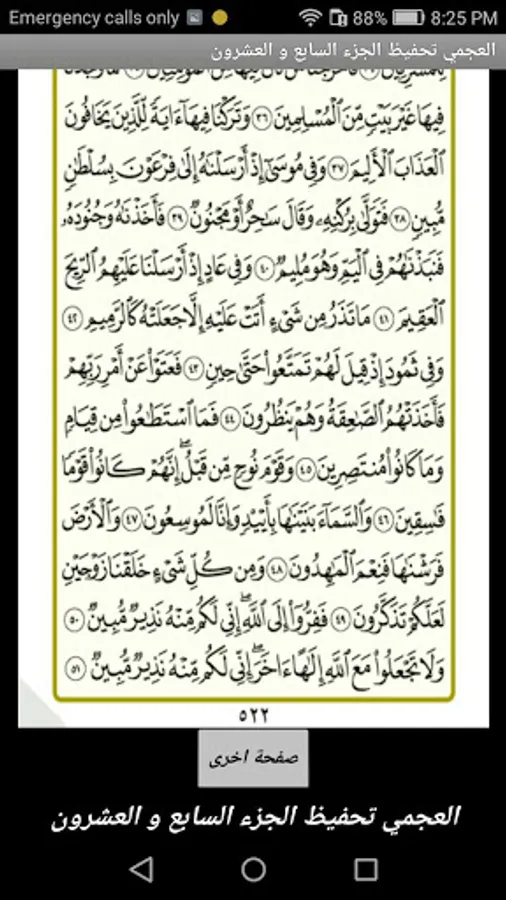 Emergency calls only 88% 8:25 PM
العجمي تحفيظ الجزء السابع و العشرون
فِيهَا غَيْرَ بَيْتٍ مِّنَ ٱلْمُسْلِمِينَ ٣٦ وَتَرَكْنَا فِيهَآ ءَايَةً لِّلَّذِينَ يَخَافُونَ
ٱلْعَذَابَ ٱلْأَلِيمَ ٣٧ وَفِى مُوسَىٰٓ إِذْ أَرْسَلْنَٰهُ إِلَىٰ فِرْعَوْنَ بِسُلْطَٰنٍ
مُّبِينٍ ٣٨ فَتَوَلَّىٰ بِرُكْنِهِۦ وَقَالَ سَٰحِرٌ أَوْ مَجْنُونٌ ٣٩ فَأَخَذْنَٰهُ وَجُنُودَهُۥ
فَنَبَذْنَٰهُمْ فِى ٱلْيَمِّ وَهُوَ مُلِيمٌ ٤٠ وَفِى عَادٍ إِذْ أَرْسَلْنَا عَلَيْهِمُ ٱلرِّيحَ
ٱلْعَقِيمَ ٤١ مَا تَذَرُ مِن شَىْءٍ أَتَتْ عَلَيْهِ إِلَّا جَعَلَتْهُ كَٱلرَّمِيمِ ٤٢
وَفِى ثَمُودَ إِذْ قِيلَ لَهُمْ تَمَتَّعُوا۟ حَتَّىٰ حِينٍ ٤٣ فَعَتَوْا۟ عَنْ أَمْرِ رَبِّهِمْ
فَأَخَذَتْهُمُ ٱلصَّٰعِقَةُ وَهُمْ يَنظُرُونَ ٤٤ فَمَا ٱسْتَطَٰعُوا۟ مِن قِيَامٍ
وَمَا كَانُوا۟ مُنتَصِرِينَ ٤٥ وَقَوْمَ نُوحٍ مِّن قَبْلُ ۖ إِنَّهُمْ كَانُوا۟ قَوْمًا
فَٰسِقِينَ ٤٦ وَٱلسَّمَآءَ بَنَيْنَٰهَا بِأَيْي۟دٍ وَإِنَّا لَمُوسِعُونَ ٤٧ وَٱلْأَرْضَ
فَرَشْنَٰهَا فَنِعْمَ ٱلْمَٰهِدُونَ ٤٨ وَمِن كُلِّ شَىْءٍ خَلَقْنَا زَوْجَيْنِ
لَعَلَّكُمْ تَذَكَّرُونَ ٤٩ فَفِرُّوٓا۟ إِلَى ٱللَّهِ ۖ إِنِّى لَكُم مِّنْهُ نَذِيرٌ مُّبِينٌ ٥٠
وَلَا تَجْعَلُوا۟ مَعَ ٱللَّهِ إِلَٰهًا ءَاخَرَ ۖ إِنِّى لَكُم مِّنْهُ نَذِيرٌ مُّبِينٌ ٥١
٥٢٢
صفحة اخرى
العجمي تحفيظ الجزء السابع و العشرون